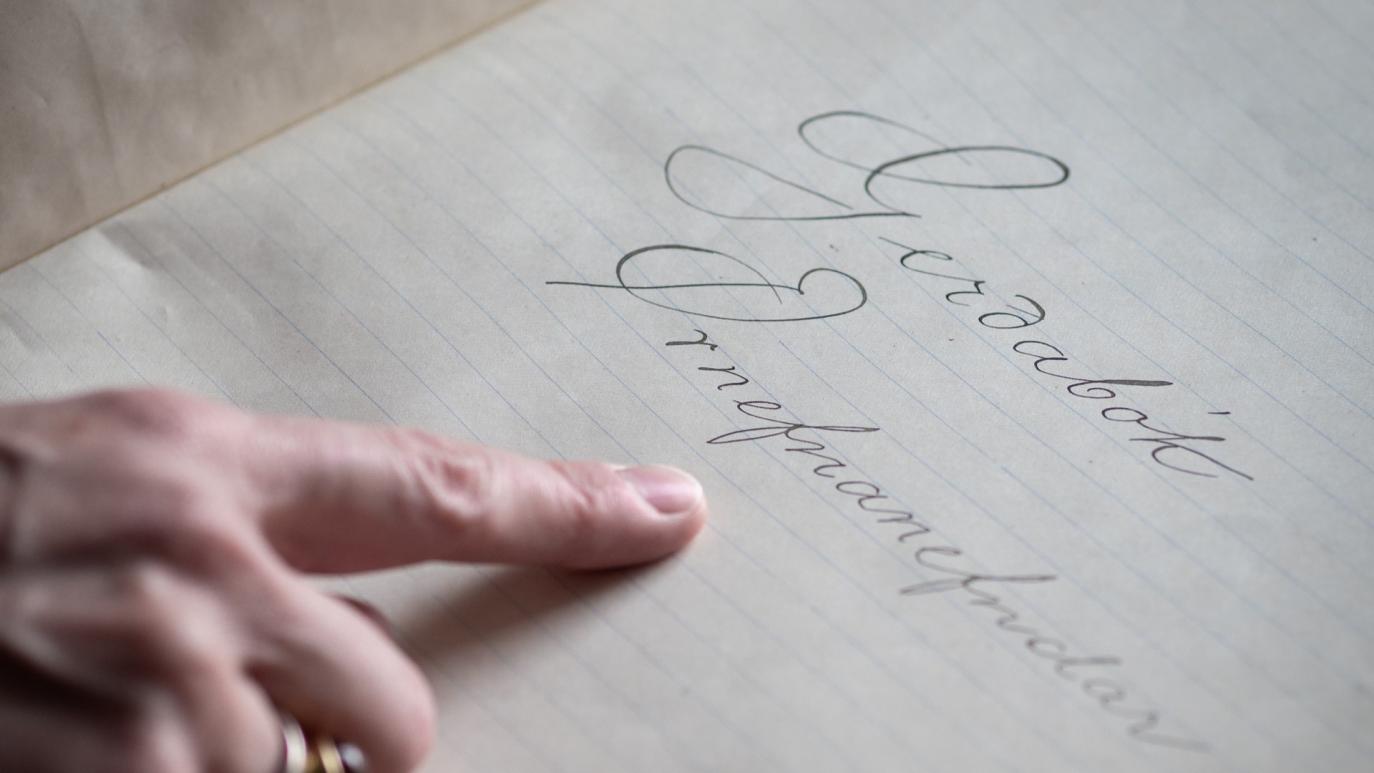 Gerðabók
Örnefnanefndar